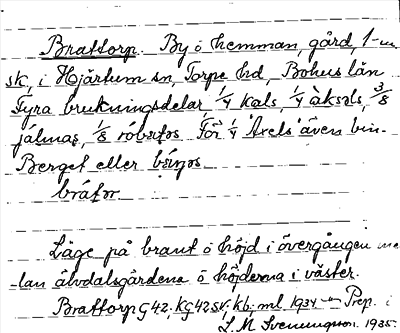 Brattorp. By o hemman, gård, 1-m
sk, i Hjärtum sn, Torpe hd, Bohus län
Fyra brukningsdelar 1/4 kals, 1/4 àksəls, 3/8
jálmas, 1/8 róbətos För 1/4 Axels även bin-
Berget eller
bråtor
Läge på brant o höjd i övergången me
-lan älvdalsgårdena o höjderna i väster.
Brattorp G42, KG42SV. Kb, ml 1934 Prep. i
L. M. Svenungson. 1935